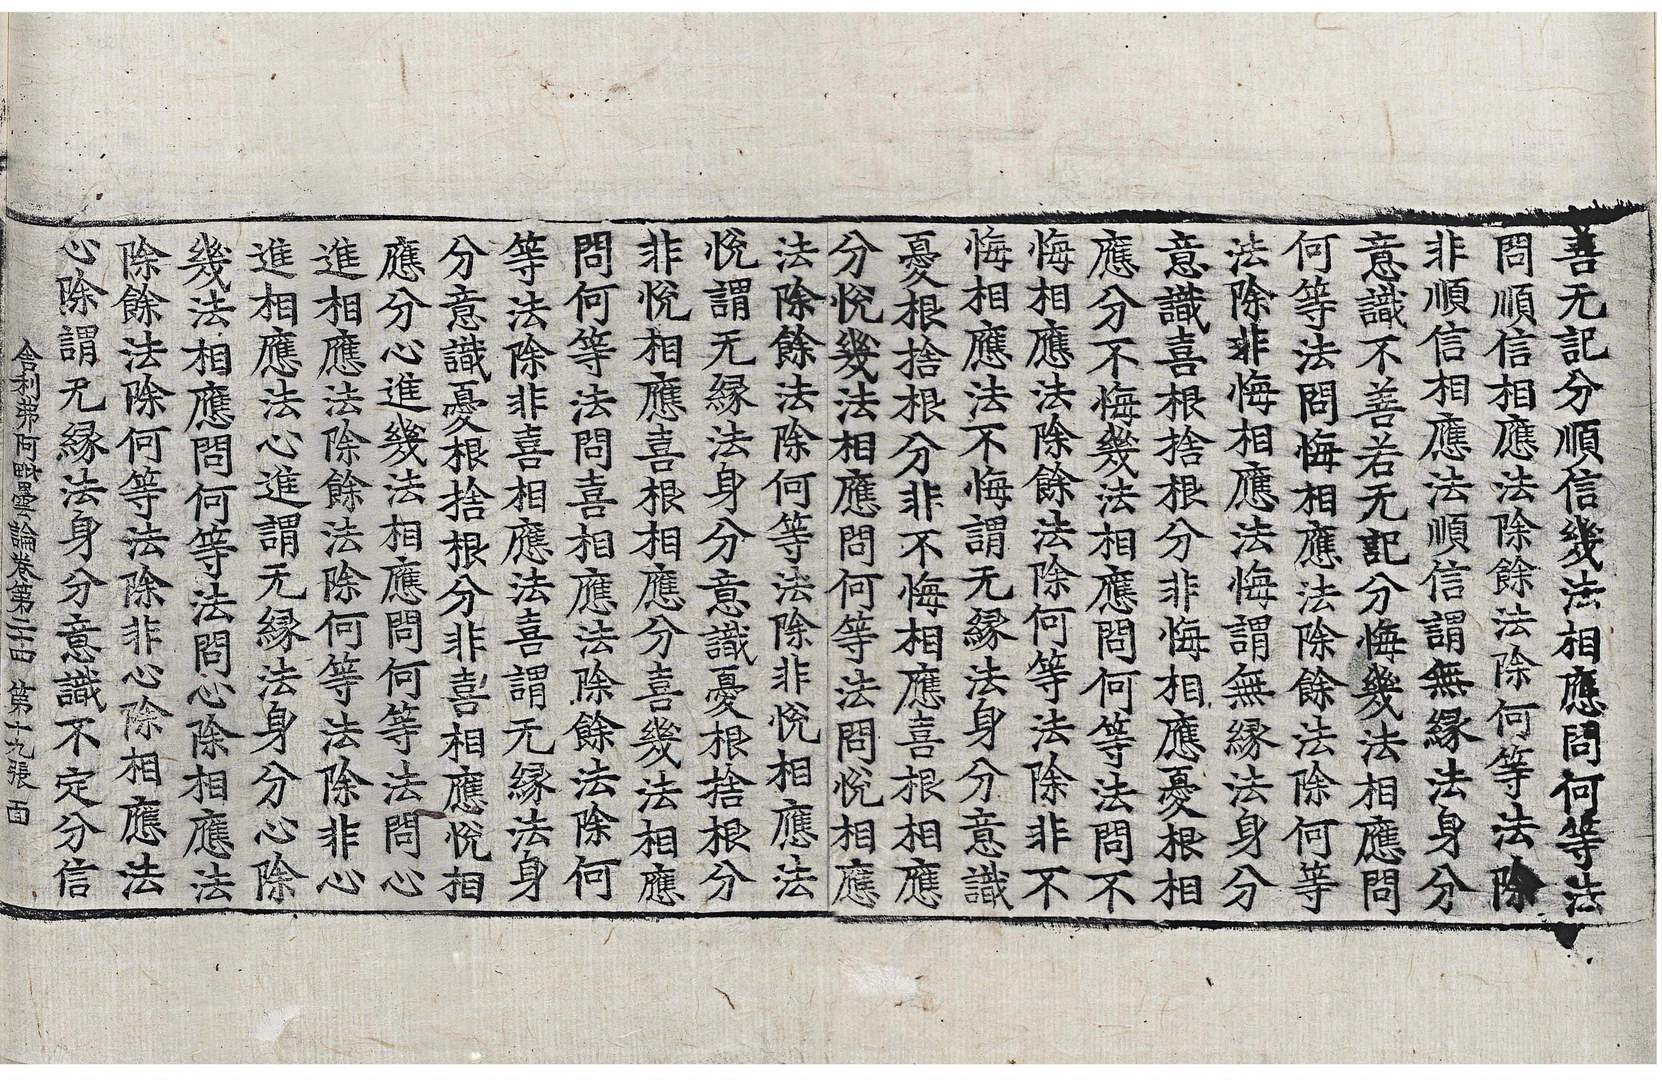 善无記分順信幾法相應問何等法
問順信相應法除餘法除何等法除
非順信相應法順信謂無縁法身分
意識不善若无記分悔幾法相應問
何等法問悔相應法除餘法除何等
法除非悔相應法悔謂無縁法身分
意識喜根捨根分非悔相應憂根相
應分不悔幾法相應問何等法問不
悔相應法除餘法除何等法除非不
悔相應法不悔謂无縁法身分意識
憂根捨根分非不悔相應喜根相應
分悅幾法相應問何等法問悅相應
法除餘法除何等法除非悅相應法
悅謂无縁法身分意識憂根捨根分
非悅相應喜根相應分喜幾法相應
問何等法問喜相應法除餘法除何
等法除非喜相應法喜謂无縁法身
分意識憂根捨根分非喜相應悅相
應分心進幾法相應問何等法問心
進相應法除餘法除何等法除非心
進相應法心進謂无縁法身分心除
幾法相應問何等法問心除相應法
除餘法除何等法除非心除相應法
心除謂无縁法身分意識不定分信
舍利弗阿毗曇論卷第二十四 第十九張 面